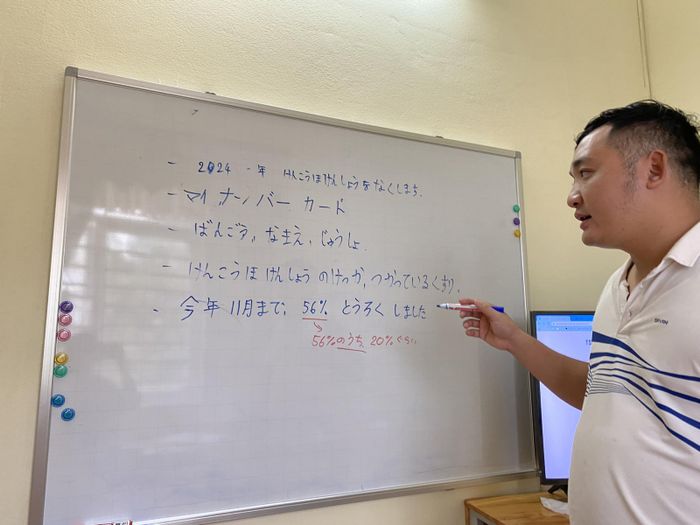 - 2024 年 けんこうほけんしょうをなくしまち.
- マイナンバー カード
- ばんごう, なまえ, じゅうしょ.
- けんこうほけんしょうのけっか, つかっているくすり.
- 今年 11月まで, 56% とうろく しました
56%のうち, 20%ぐらい